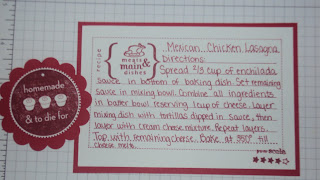 recipe
meals
main
&
dishes
Mexican Chicken Lasagna
Directions:
Spread 2/3 cup of enchilada
sauce in bottom of baking dish. Set remaining
sauce in mixing bowl. Combine all ingredients
in bowl reserving 1 cup of cheese. Layer
mixing dish with tortillas dipped in sauce, then
layer with cream cheese mixture. Repeat layers.
Top with remaining cheese. Bake at 350° till
cheese melts.
homemade
& to die for